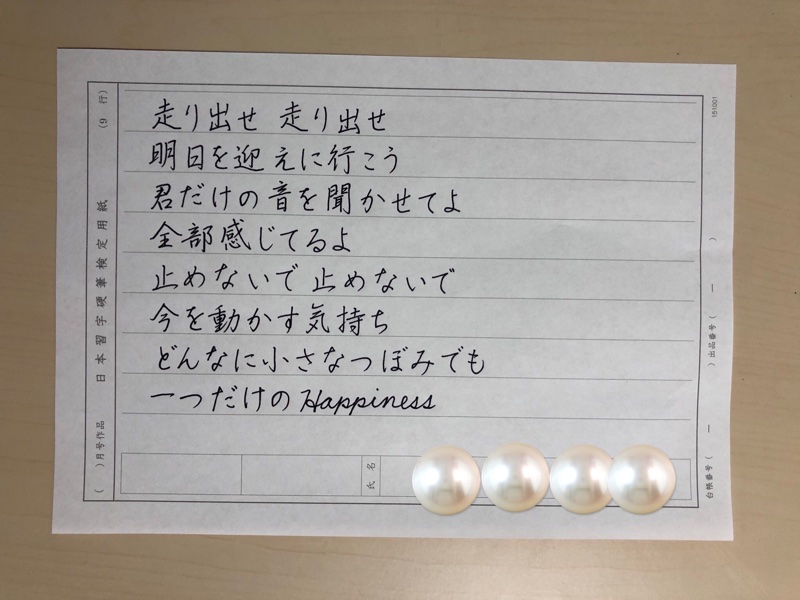 走り出せ 走り出せ
明日を迎えに行こう
君だけの音を聞かせてよ
全部感じてるよ
止めないで 止めないで
今を動かす気持ち
どんなに小さなつぼみでも
一つだけのHappiness
(9 行)
日本習字硬筆検定用紙
( )月号作品
氏名
151001
出品番号( ー )
台帳番号( ー )